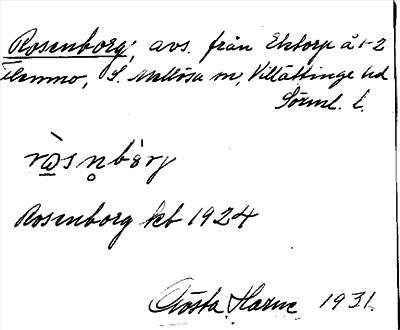 Rosenborg, avs. från Ektorp å 1-2
Hammo, S. Mellösa sn, Villåttinge hd
Södml. l.
ròsn̥bèrj
Rosenborg kb 1924
Gösta Harne 1931.